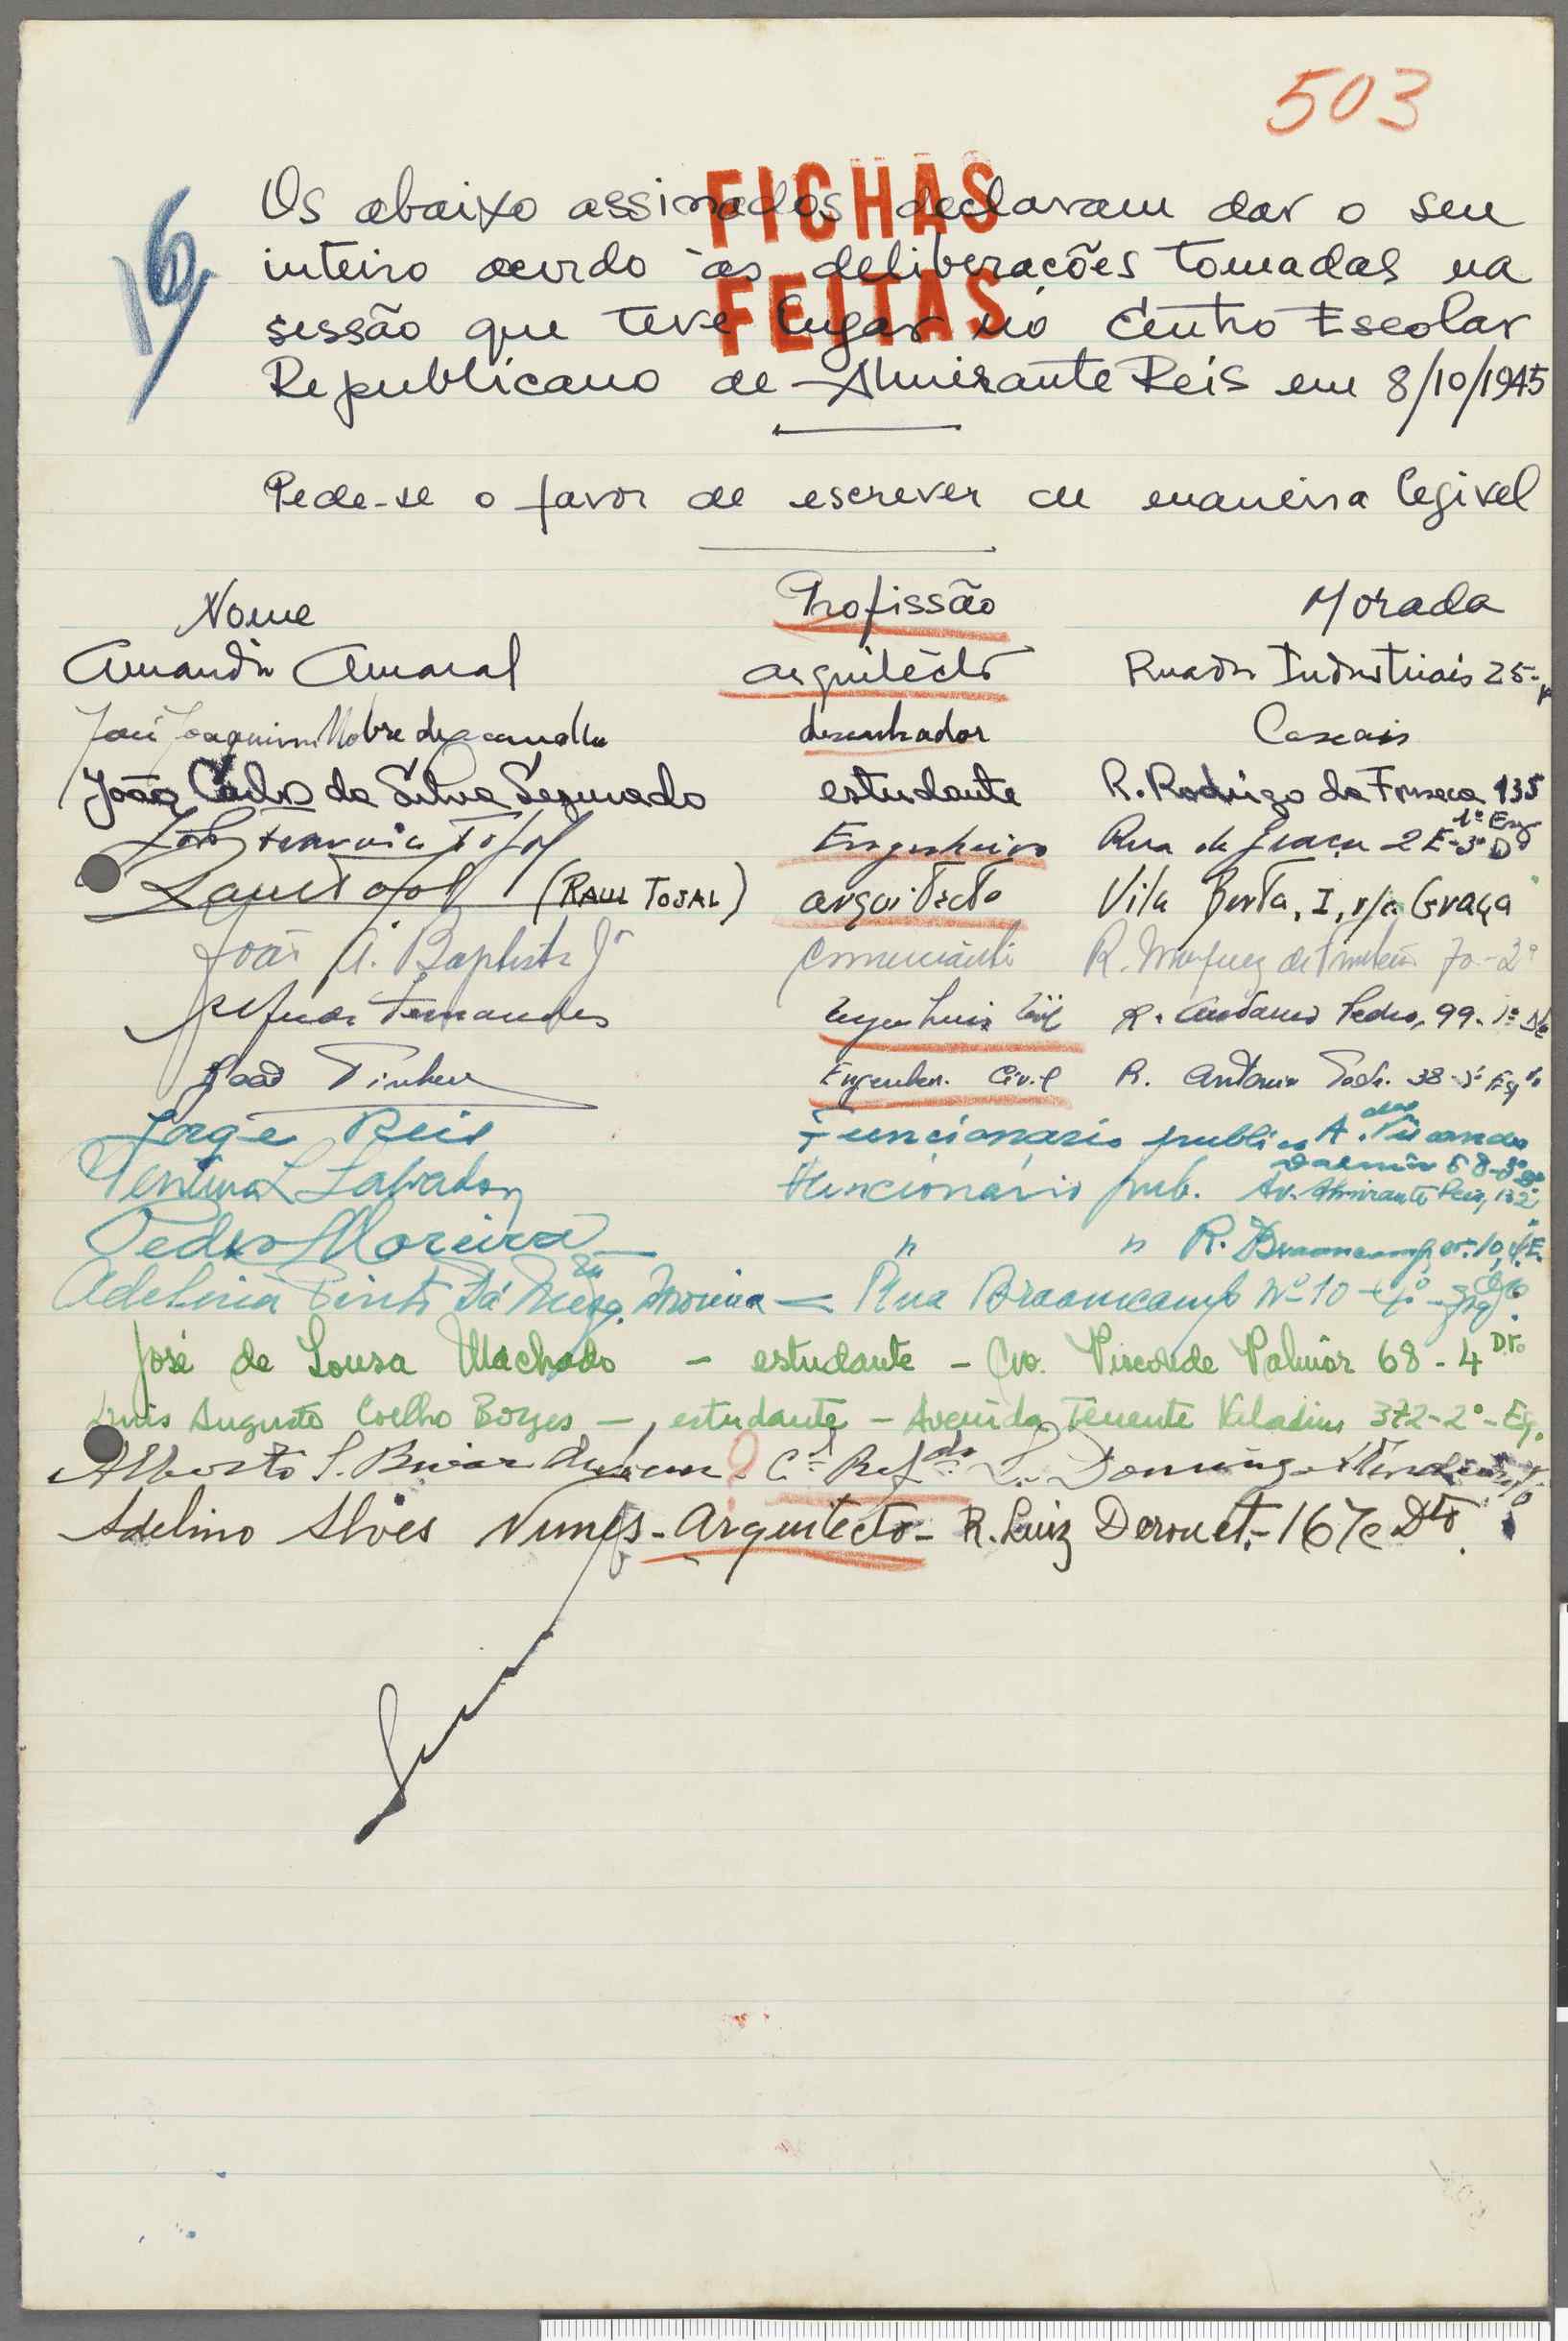 503
16
FICHAS
FEITAS
Os abaixo assinados declaram dar o seu
inteiro acordo às deliberações tomadas na
sessão que teve lugar no Centro Escolar
Republicano de Almirante Reis em 8/10/1945
Pede-se o favor de escrever de maneira legivel
Nome Profissão Morada
Amandio Amaral arquitécto Rua dos Industriais 25-
José Joaquim Nobre de desenhador Cascais
João Carlos da Silva Segurado estudante R. Rodrigo da Fonseca 135 1º Esq
Tojal Engenheiro Rua da Graça 2 E-3º D
Raul Tojal (RAUL TOJAL) arquitecto Vila Berta, I, r/c, Graça
João A. Baptista Jr Comerciante R. 70-2º
Fernandes Engenheiro Civil R. Antonio Pedro, 99-
João Engenheiro Civil R. Antonio Pedro 38-
Jorge Reis Funcionario publico 68-3º
Ventura L Salvador Funcionário pub. Av. Almirante Reis, 132
Pedro Moreira " " R. Braamcamp, nº 10, 4º E.
Adelina Pinto Moreira = Rua Braamcamp Nº 10-4º
José de Sousa Machado - estudante - Visconde Valmôr 68-4 Dto
Luis Augusto Coelho Borges -, estudante - Avenida Tenente Valadim 372-2º-Esq.
Alberto S. L. Domingos
Adelino Alves Nunes - Arquitecto - R. Luiz Derouet,-16 r/c Dto.